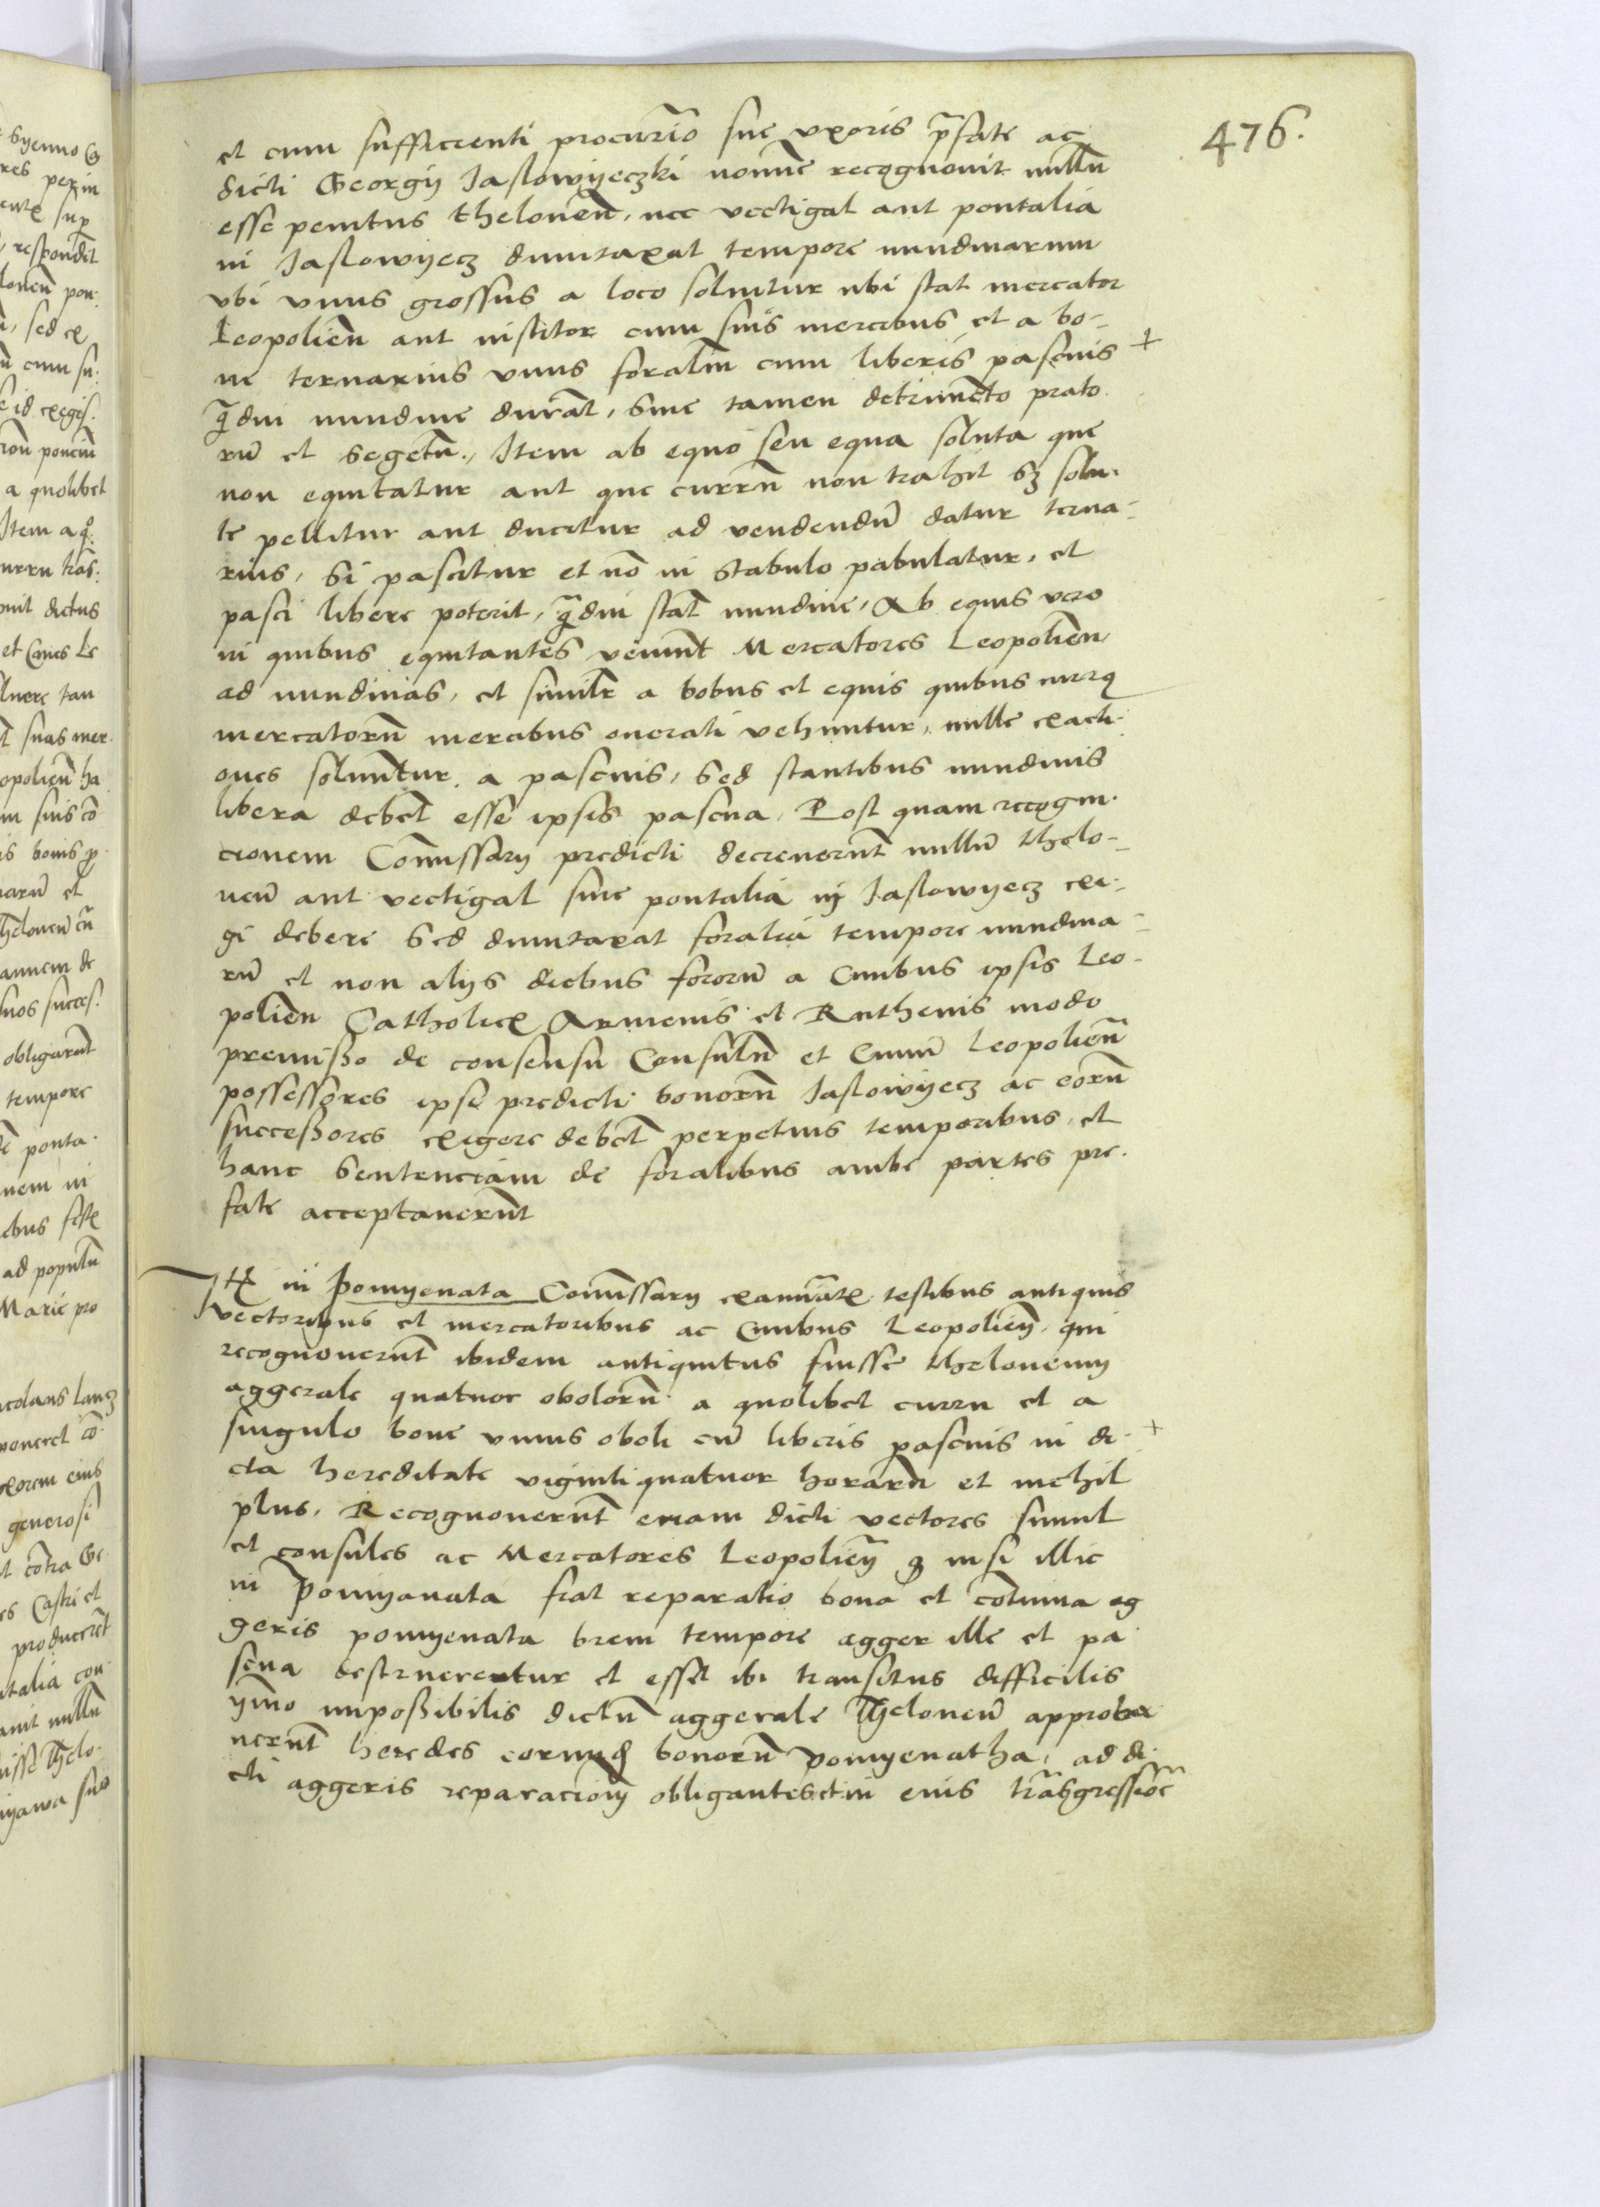 476.
et cum sufficienti procurãio sue vxoris p̃fate ac
dicti Georgij Jaslowijeczki noĩe recognovit nullũ
esse penitus theloneũ, nec vectigal aut pontalia
in Jaslowijecz dumtaxat tempore nundinarum
vbi vnus grossus a loco soluitur ubi stat mercator
Leopolieñ aut institor cum suis mercibus et a bo-
ue ternarius vnus foraliũ cum liberis pascuis
q̃diu nundine durãt, sine tamen detrimẽto prato
rũ et segetũ, Item ab equo seu equa soluta que
non equitatur aut que currũ non trahit sz solu-
te pellitur aut ducitur ad vendendũ datur terna-
rius, si pascitur et nõ in stabulo pabulatur, et
pasci libere poterit, q̃diu stãt nundine, Ab equis vero
in quibus equitantes veniũt Mercatores Leopolieñ
ad nundinas, et similr̃ a bobus et equis quibus currꝯ
mercatorũ mercibus onerati vehuntur, nulle exacti-
ones soluuntur a pascuis, sed stantibus nundinis
libera debẽt esse ipsis pascua, Post quam recogni-
cionem Com̃issarij predicti decreuerũt nullũ thelo-
neũ aut vectigal siue pontalia in Jaslowijecz exi-
gi debere sed dumtaxat foralia tempore nundina-
rũ et non alijs diebus fororũ a Ciuibus ipsis Leo-
polieñ Catholicꝭ Armenis et Ruthenis modo
premisso de consensu Consulũ et Ciuiũ Leopolieñ
possessores ipsi predicti bonorũ Jaslowijecz ac eorũ
successores exigere debẽt perpetuis temporibus, et
hanc sentenciam de foralibus ambe partes pre-
fate acceptauerũt
Itꝭ in Pomyenata Com̃issarij examĩatꝭ testibus antiquis
vectoribus et mercatoribus ac Ciuibus Leopolieñ, qui
recognouerũt ibidem antiquitus fuisse theloneum
aggerale quatuor obolorũ a quolibet curru et a
singulo boue vnius oboli cũ liberis pascuis in di-
cta hereditate vigintiquatuor horarũ et nichil
plus, Recognouerũt eciam dicti vectores simul
et consules ac Mercatores Leopolieñ qꝫ nisi illic
in Pomijanata fiat reparatio bona et cõtinua ag
geris pomyenata breui tempore agger ille et pa
scua destruerentur et esset ibi transitus difficilis
ymo impossibilis dictũ aggerale Theloneũ approba
uerũt heredes eorundẽ bonorũ pomyenatha, ad di-
cti aggeris reparacioñ obligantes et in eius trãsgressiõe